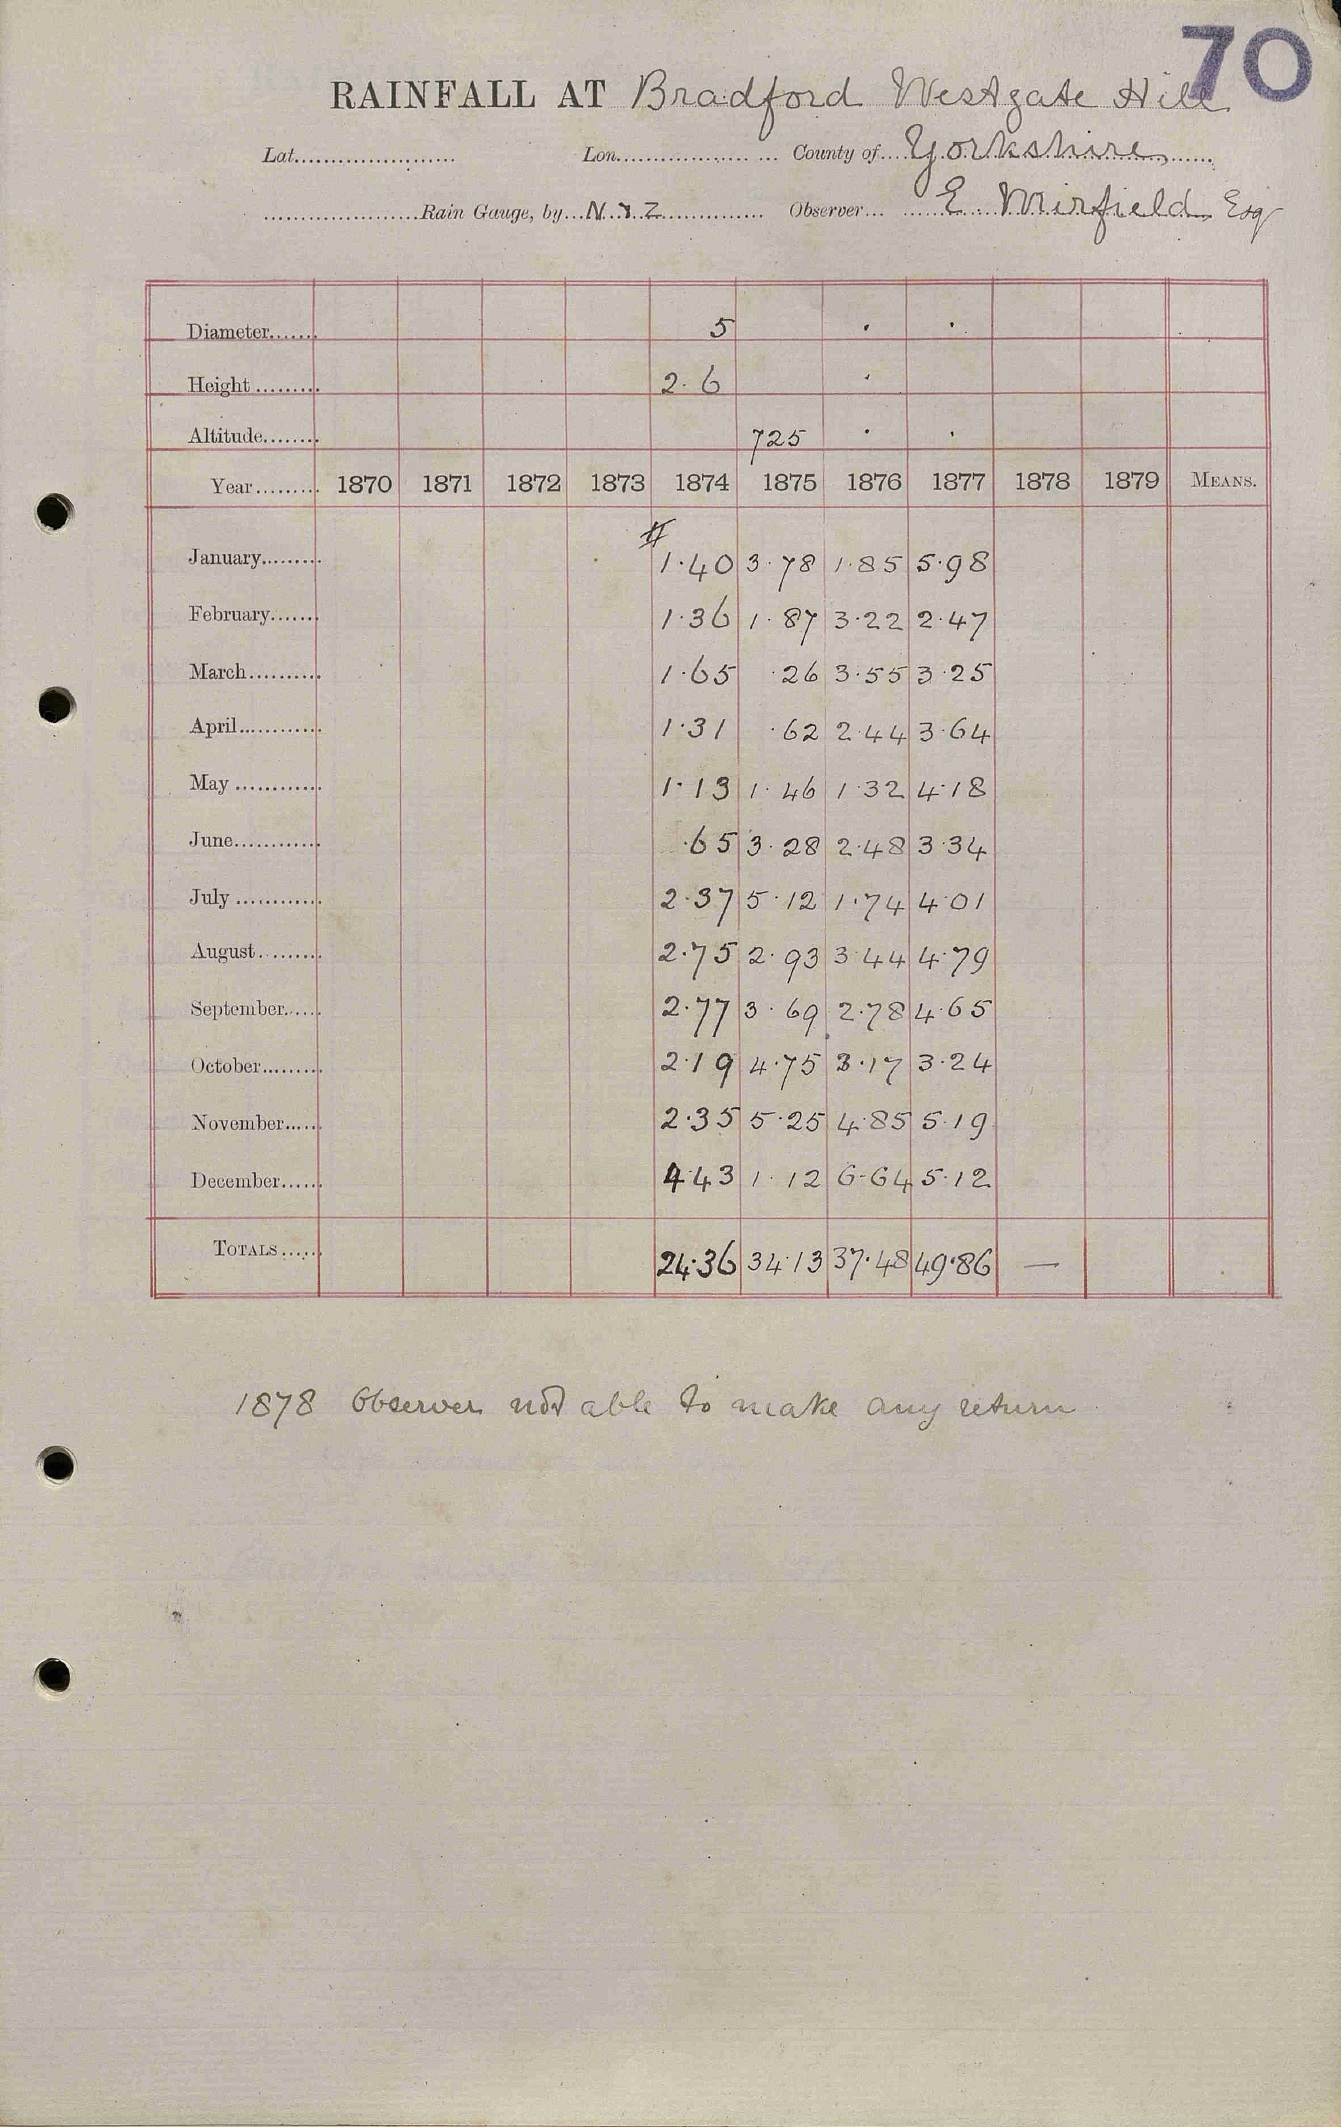 70
RAINFALL AT Bradford Westgate Hill
Lat...................... Lon...................... County of....Yorkshire
......................Rain Gauge, by...N.&Z.............. Observer... E Mirfield Esq
Diameter....... 5 . .
Height ......... 2.6 .
Altitude........ 725 . .
Year......... 1870 1871 1872 1873 1874 1875 1876 1877 1878 1879 MEANS.
#
January......... 1.40 3.78 1.85 5.98
February....... 1.36 1.87 3.22 2.47
March.......... 1.65 .26 3.55 3.25
April............ 1.31 .62 2.44 3.64
May ............ 1.13 1.46 1.32 4.18
June............ .65 3.28 2.48 3.34
July ............ 2.37 5.12 1.74 4.01
August......... 2.75 2.93 3.44 4.79
September...... 2.77 3.69 2.78 4.65
October......... 2.19 4.75 3.17 3.24
November...... 2.35 5.25 4.85 5.19
December...... 4.43 1.12 6.64 5.12
TOTALS...... 24.36 34.13 37.48 49.86 —
1878 Observer not able to make any return